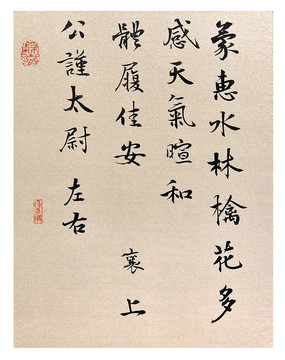 蒙惠水林檎花多
感天氣暄和
體履佳安　襄上
公謹太尉左右